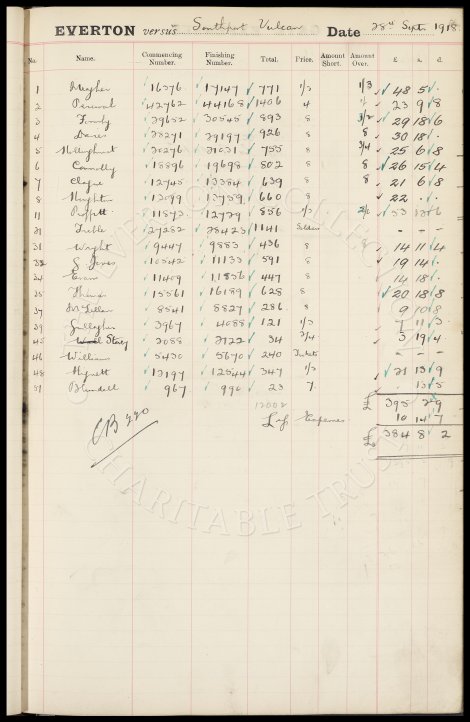 EVERTON versus Southport Vulcan Date 28th Sept. 1918
No. Name. Commencing Number. Finishing Number. Total. Price. Amount Short. Amount Over. £ s. d.
1 Meagher 16376 17147 771 1/3 1/3 48 5
2 Percival 42762 44168 1406 4 23 9 8
3 29652 30545 893 8 29 18 6
4 Davies 38271 39197 926 8 8 30 18
5 30276 31031 755 8 3/4 25 6 8
6 Connolly 18896 19698 802 8 8 26 15 4
7 Clague 12745 13384 639 8 8 21 6 8
8 Houghton 13099 13759 660 8 22
11 11873 12729 856 1/3 53 13 6
21 Treble 27282 28423 1141 Soldiers - - -
31 Wright 9447 9883 436 8 14 11 4
32 S Jones 10542 11133 591 8 19 14
34 Evans 11409 11856 447 8 14 18
35 Thomas 15561 16189 628 8 20 18 8
37 McLellan 8541 8827 286 8 9 10 8
39 Gallagher 3967 4088 121 1/3 11 3
45 Storey 3088 3122 34 2/4 3 19 4
46 Williams 5430 5670 240 Tickets - - -
48 Hignett 12197 12544 347 1/3 21 13 9
51 Blundell 967 990 23 7 13 5
12002 £ 395 2 9
CB 220 Less Expenses 10 14 7
£ 384 8 2
EVERTON COLLECTION
CHARITABLE TRUST